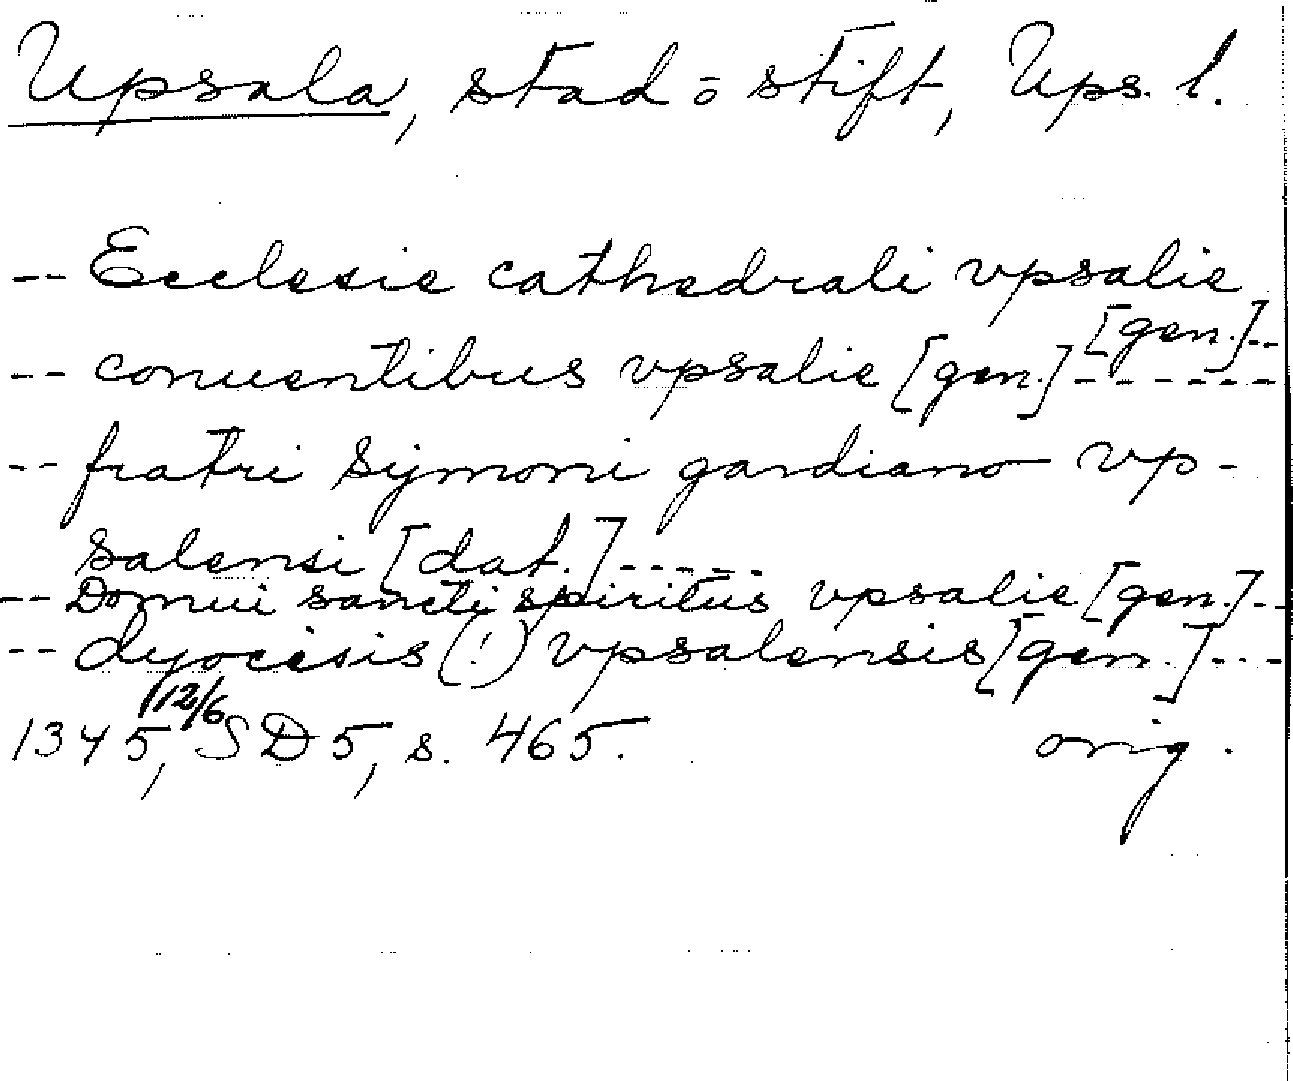 Upsala, stad o stift, Ups. l.
-- Ecclesie cathedrali vpsalie
[gen.]--
-- conuentibus vpsalie [gen.]------
-- fratri Symoni gardiano vp-
salensi [dat.]-----
-- Domui sancti spiritus vpsalie [gen.]--
-- dyocesis (!) vpsalensis [gen.]---
1345 12/6, SD 5, s. 465. orig.